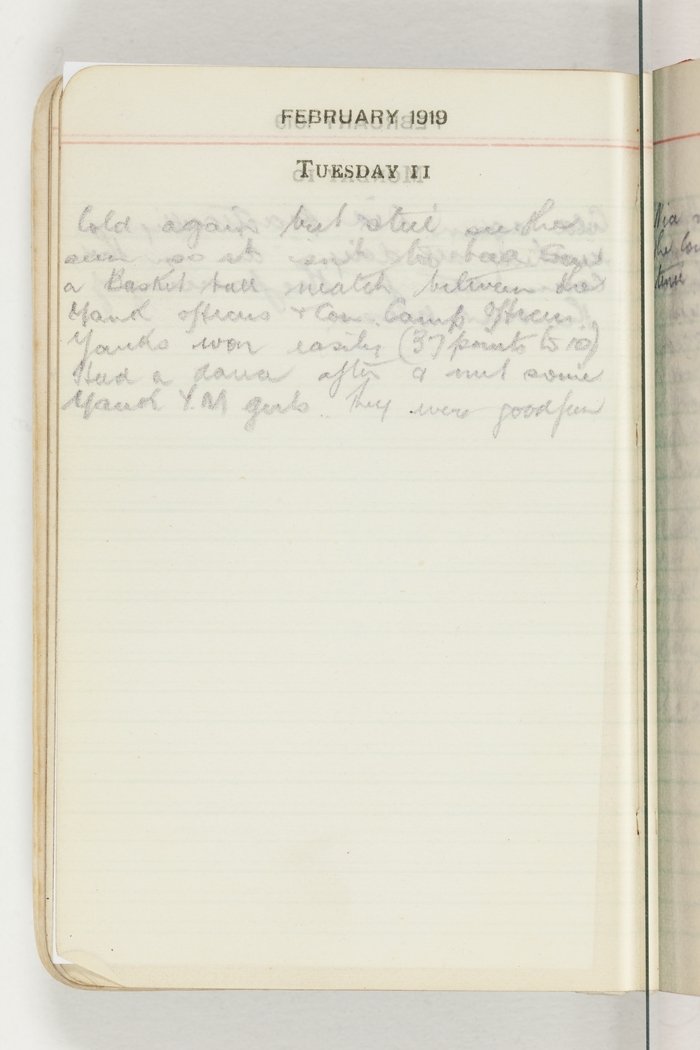 FEBRUARY 1919
TUESDAY 11
Cold again but still see the
sun so it isnt too bad. Saw
a Basket ball match between the
Yank officers & Con. Camp Officers.
Yanks won easily (37 points to 10)
Had a dance after & met some
Yank Y.M girls. They were good fun